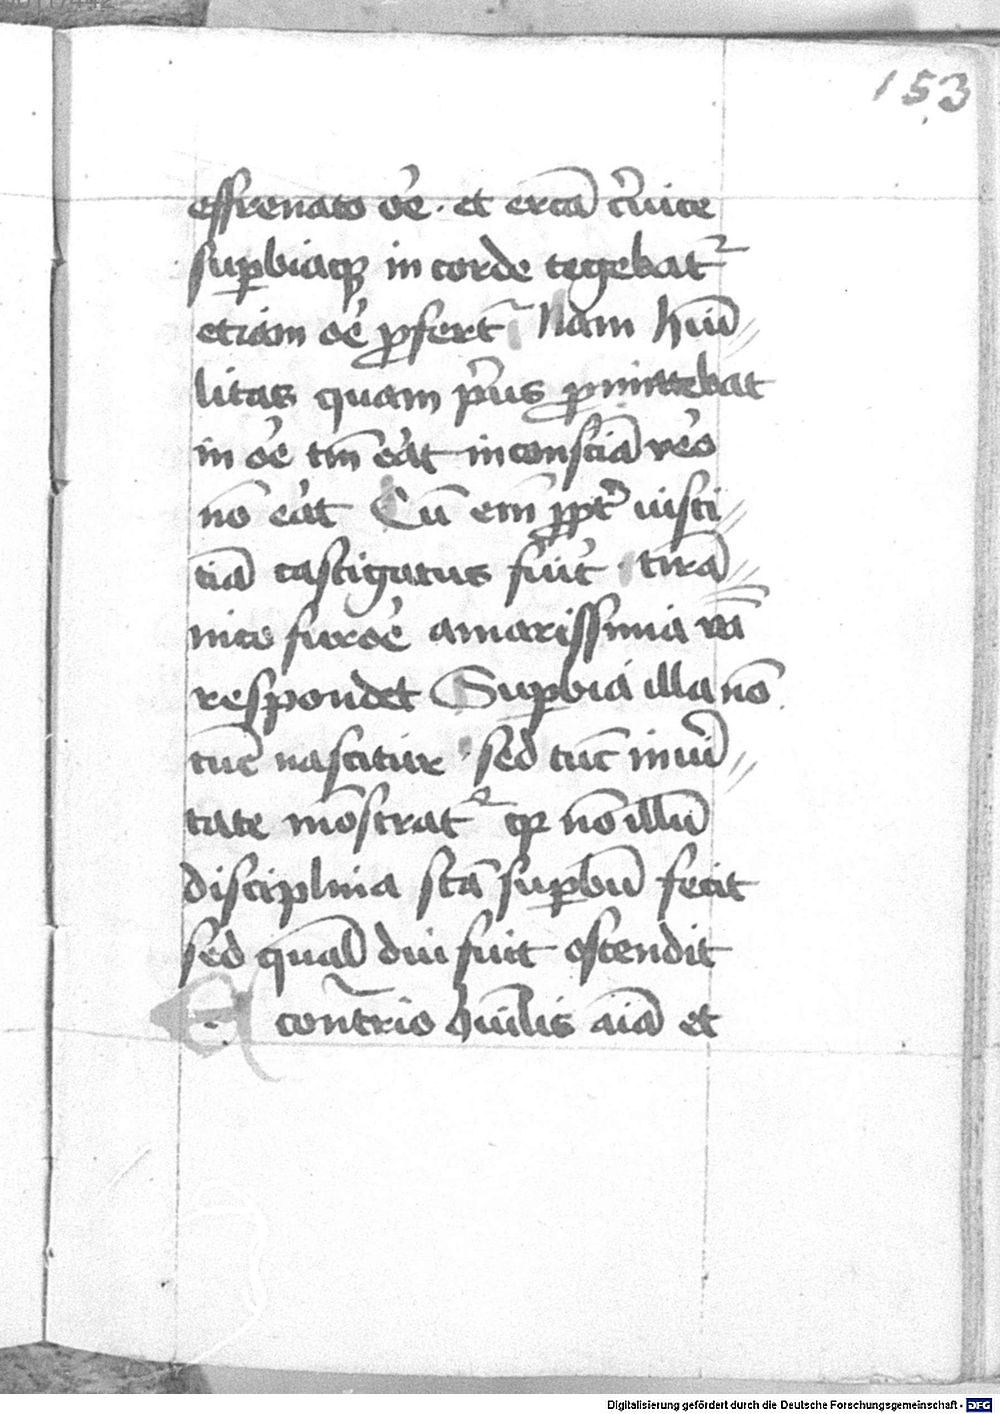 153
effrenato oꝛ̃e · et ercã cͥuice
suꝑbiaqꝫ in corde tegebatᷣ
etiam oꝛ̃e ꝓfert᷑ Nam huı̄
litas quam pͥus ꝓmittebat
in oꝛ̃e tm̄ eãt in consciã veõ
nõ eãt Cũ em̄ ꝓpt̾ iusti
ciã castigatus fũit̾ · tirã
nico furoꝛ̃e amarissima vã
respondet Suꝑbia illa nõ
tũc nascitur · sed tũc in vı̃
tate mõstratᷣ ꝙ nõ illũ
disciplina scã suꝑbũ fecit
sed qualẽ diu fuit ostendit
E contᷓrio hũilis aĩa et
Digitalisierung gefördert durch die Deutsche Forschungsgemeinschaft - DFG